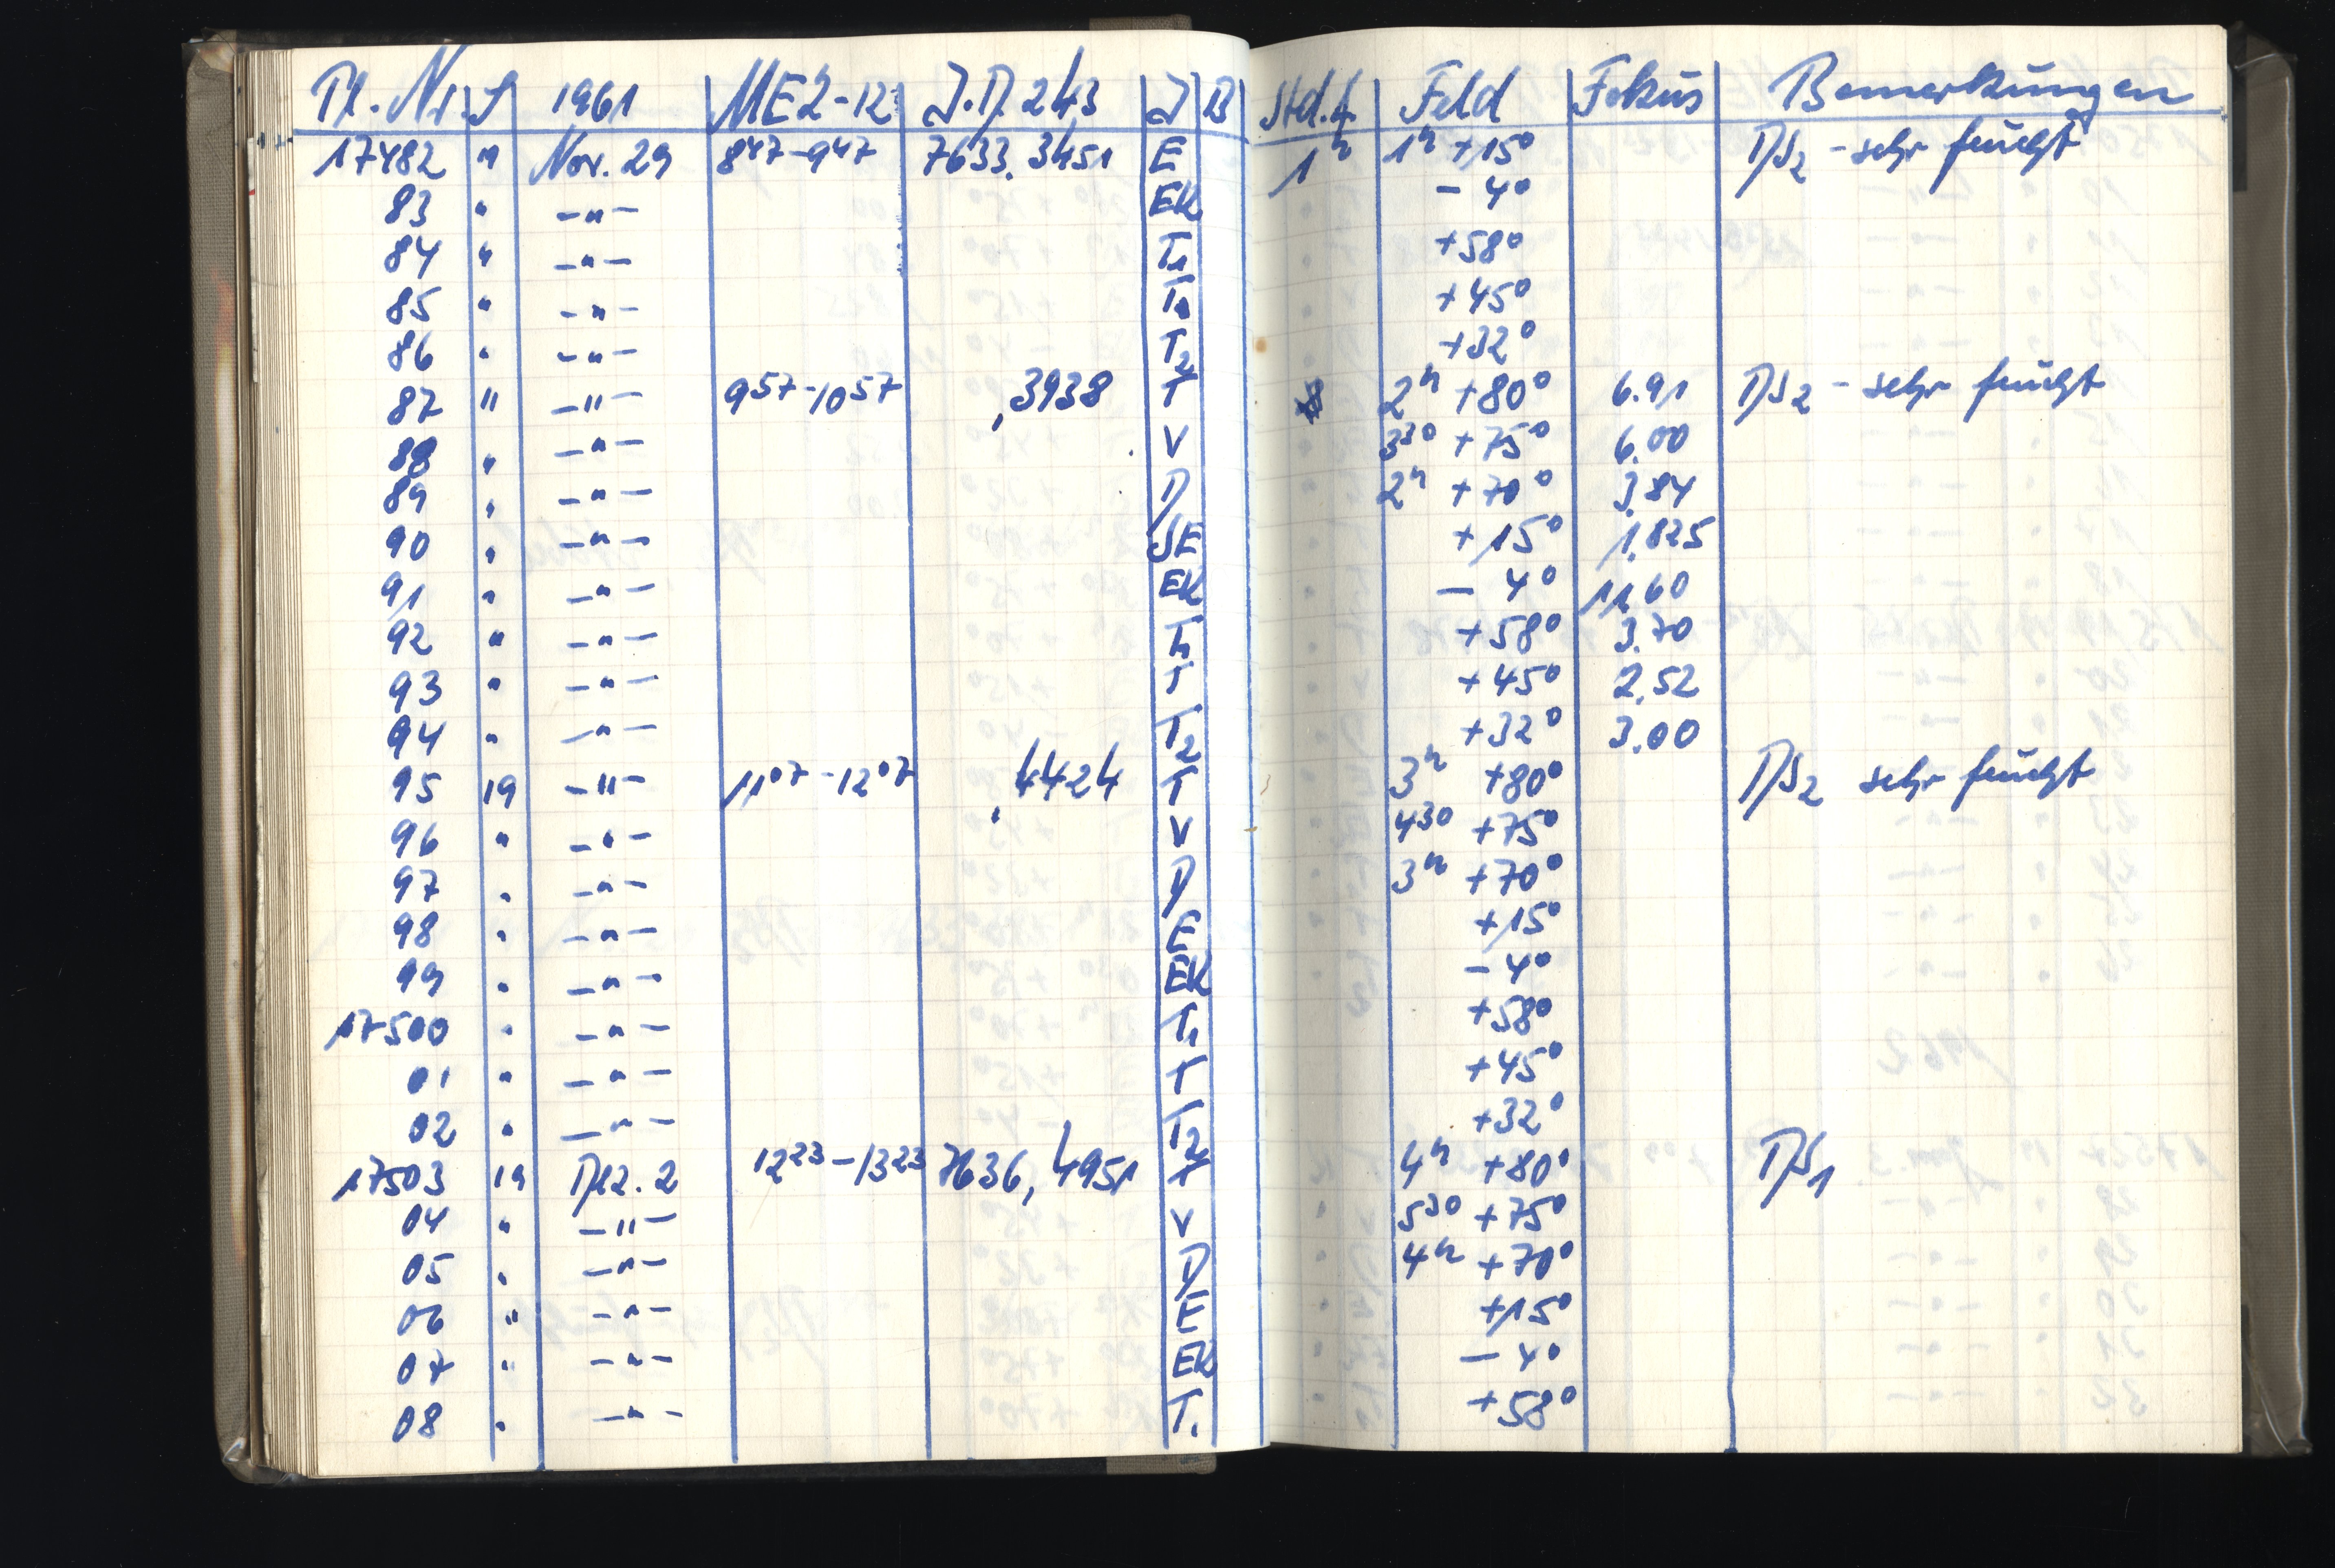 Pl. Nr. S 1961 MEZ-12 J.D. 243 J B Std.f. Feld Fokus Bemerkungen
17482 " Nov. 29 8 47 - 9 47 7633.3451 E 1h 1h +15° DS2 - sehr feucht
83 " - " - EK - 4°
84 " - " - T1 +58°
85 " - " - T +45°
86 " - " - T2 +32°
87 " - " - 9 57 - 10 57 ,3938 T 2h +80° 6.91 DS2 - sehr feucht
88 " - " - V 3 30 +75° 6.00
89 " - " - D 2h +70° 3.84
90 " - " - SE +15° 1.825
91 " - " - EK - 4° 11.60
92 " - " - T1 +58° 3.70
93 " - " - T +45° 2.52
94 " - " - T2 +32° 3.00
95 19 - " - 11 07 - 12 07 ,4424 T 3h +80° DS2 sehr feucht
96 " - " - V 4 30 +75°
97 " - " - D 3h +70°
98 " - " - E +15°
99 " - " - EK - 4°
17500 " - " - T1 +58°
01 " - " - T +45°
02 " - " - T2 +32°
17503 19 Dez. 2 12 23 - 13 23 7636,4951 T 4h +80° DS1
04 " - " - V 5 30 +75°
05 " - " - D 4h +70°
06 " - " - E +15°
07 " - " - EK - 4°
08 " - " - T1 +58°